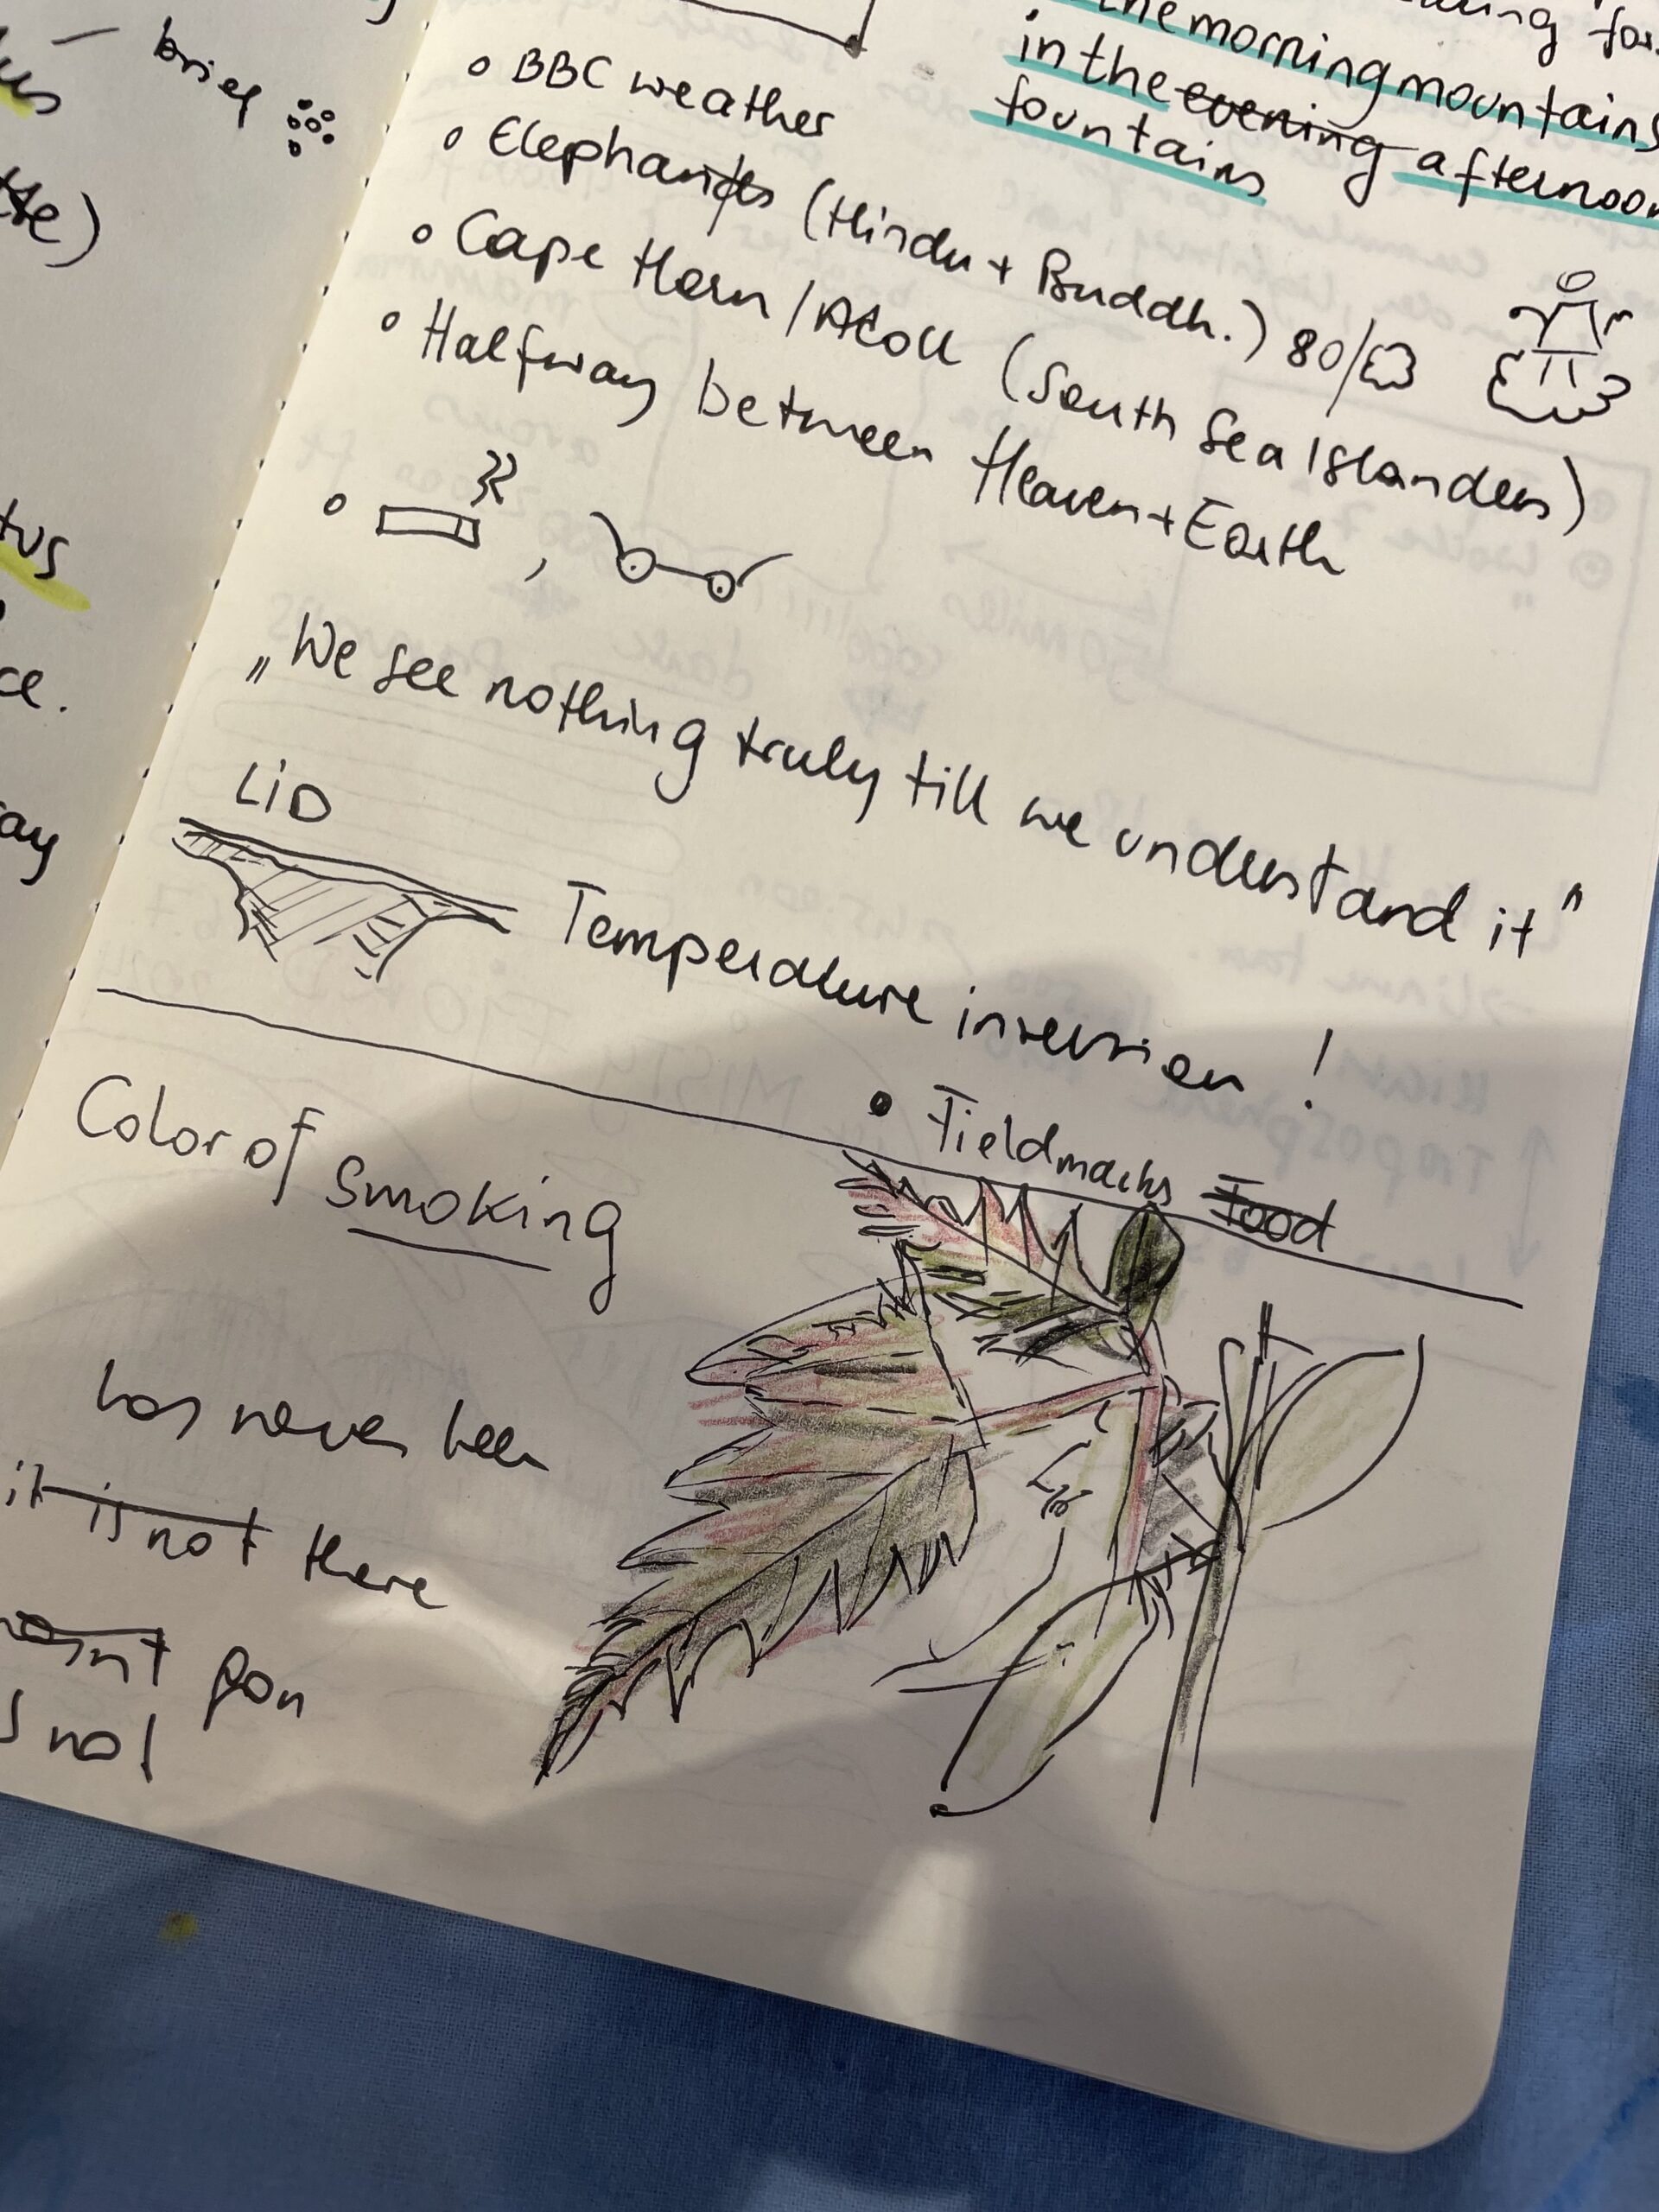 brief
themorningmountains
inthe evening afternoon
fountains
BBC weather
Elephants (Hindu + Buddh.) 80/
Cape Horn / Atoll (South Sea Islanders)
Halfway between Heaven + Earth
„We see nothing truly till we understand it"
LiD
Temperature inversion!
Fieldmarks Food
Color of Smoking
has never been
it is not there
is not